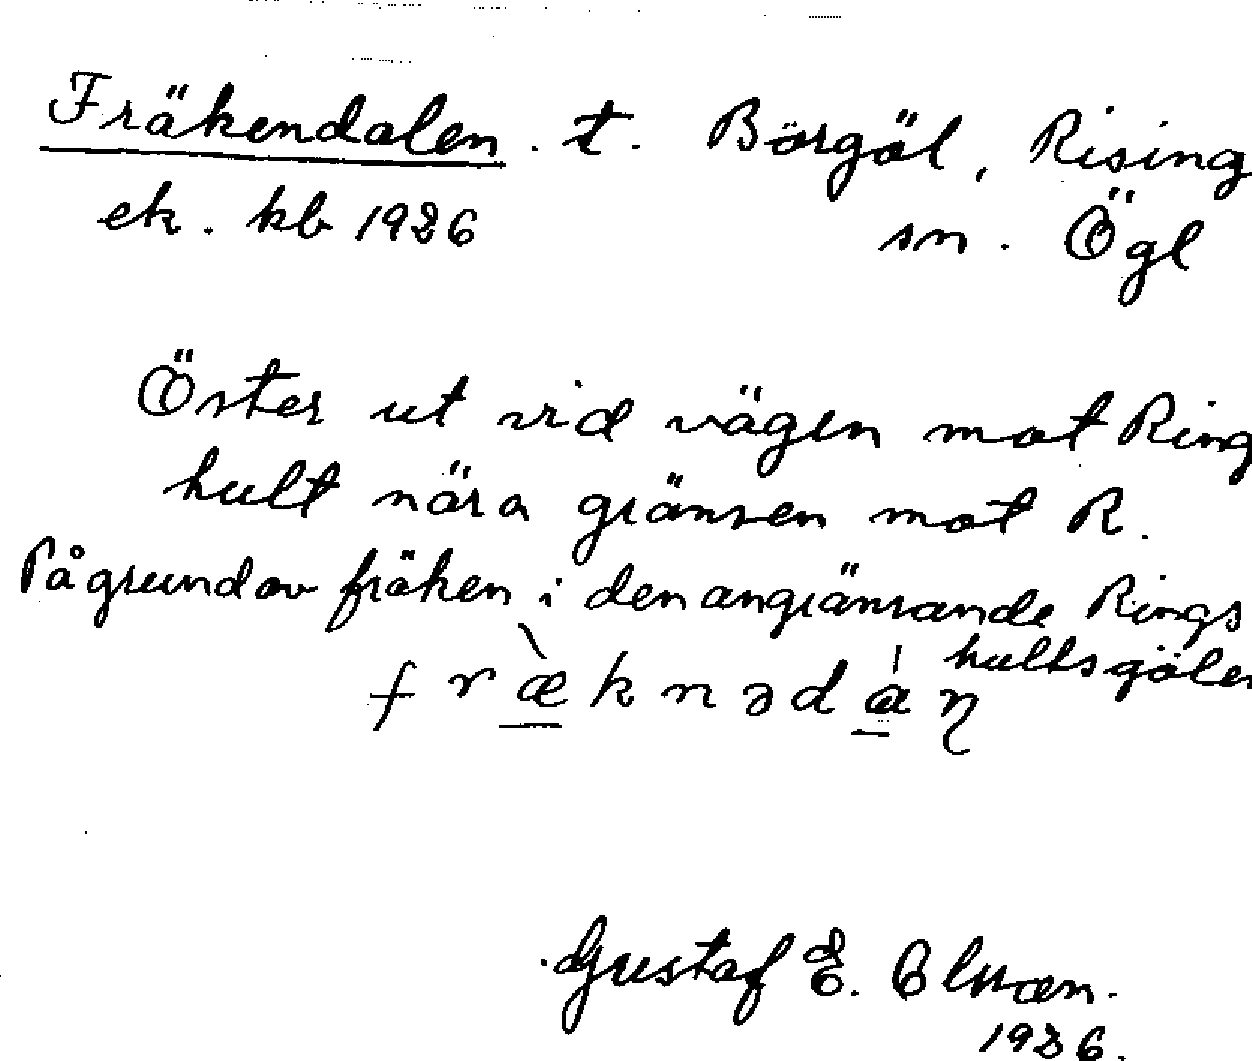 Fräkendalen. t. Börgöl, Rising
ek. kb 1936 sn. Ögl
Öster ut vid vägen mot Ring
hult nära gränsen mot R.
På grund av fräken i den angränsande Rings
hultsgölen
fræknədaŋ
Gustaf E.
1936.